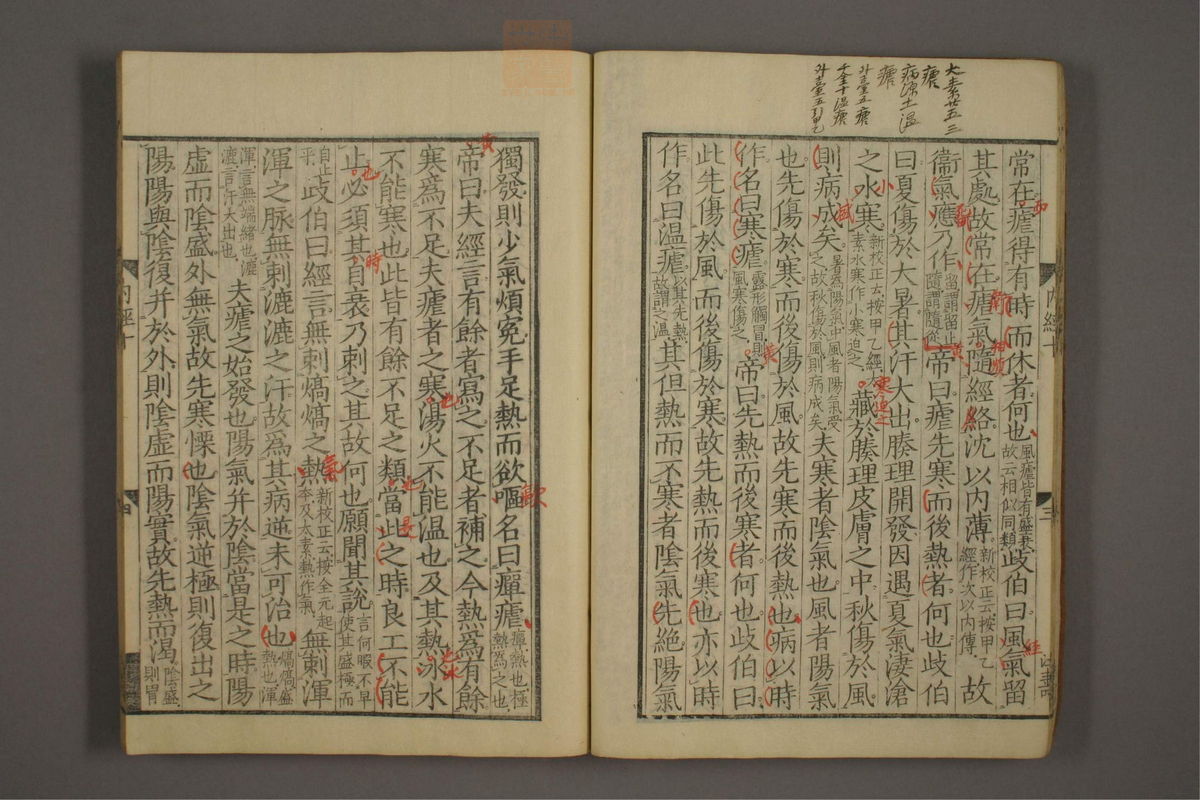 大素廿五三
瘧
病源十一温
瘧
外臺五瘧
千金十温瘧
外臺五引甲乙
常在瘧得有時而休者何也風瘧皆有盛衰故云相似同類岐伯曰風氣留
其處故常在瘧氣隨經絡沈以内薄新校正云按甲乙經作次以内傳故
衞氣應乃作留謂留止隨謂隨從帝曰瘧先寒而後熱者何也歧伯
曰夏傷於大暑其汗大出腠理開發因遇夏氣淒滄
之水寒新校正云按甲乙經太素水寒作小寒迫之藏於腠理皮膚之中秋傷於風
則病成矣暑爲陽氣中風者陽氣受之故秋傷於風則病成矣夫寒者陰氣也風者陽氣
也先傷於寒而後傷於風故先寒而後熱也病以時
作名曰寒瘧露形觸冒則風寒傷之帝曰先熱而後寒者何也歧伯曰
此先傷於風而後傷於寒故先熱而後寒也亦以時
作名曰温瘧以其先熱故謂之温其但熱而不寒者陰氣先絶陽氣
内經十
三
獨發則少氣煩寃手足熱而欲嘔名曰癉瘧癉熱也極熱爲之也
帝曰夫經言有餘者寫之不足者補之今熱爲有餘
寒爲不足夫瘧者之寒湯火不能温也及其熱冰水
不能寒也此皆有餘不足之類當此之時良工不能
止必須其自衰乃刺之其故何也願聞其説言何暇不早使其盛極而
自止乎歧伯曰經言無刺熇熇之熱新校正云按全元起本及太素熱作氣無刺渾
渾之脉無刺漉漉之汗故爲其病逆未可治也熇熇盛熱也渾
渾言無端緒也漉漉言汗大出也夫瘧之始發也陽氣并於陰當是之時陽
虚而陰盛外無氣故先寒慄也陰氣逆極則復出之
陽陽與陰復并於外則陰虚而陽實故先熱而渴陰盛則胃
内經十
四